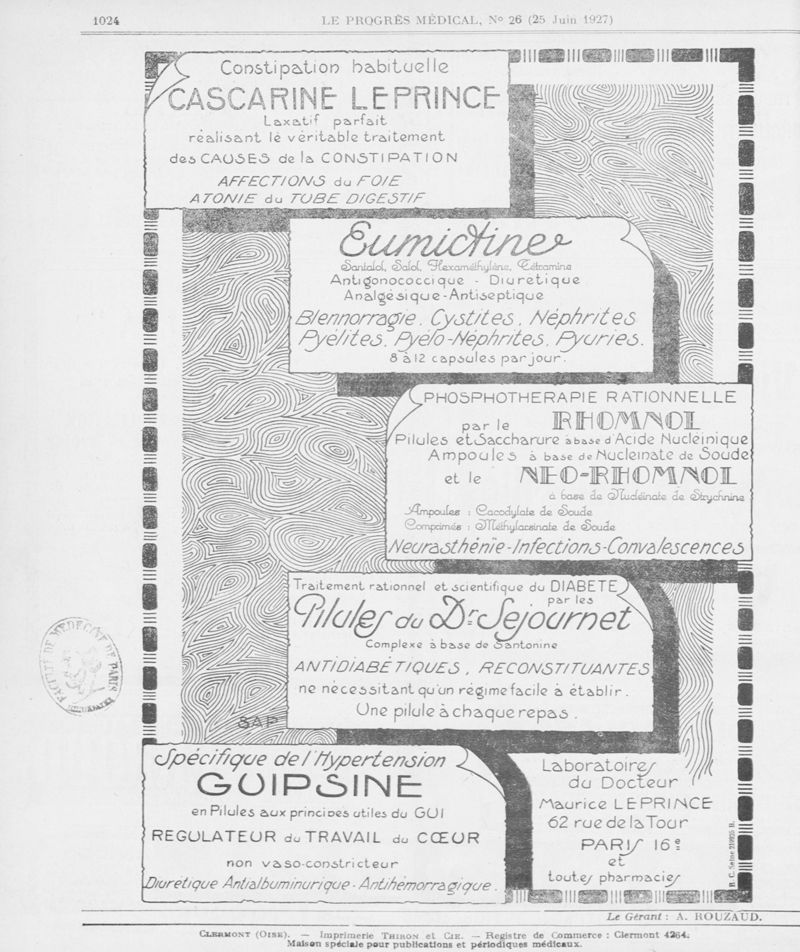 1024
LE PROGRÈS MÉDICAL, No 26 (25 Juin 1927)
Constipation habituelle
CASCARINE LEPRINCE
Laxatif parfait
réalisant le véritable traitement
des CAUSES de la CONSTIPATION
AFFECTIONS du FOIE
ATONIE du TUBE DIGESTIF
Eumictine
Santalol, Salol, Hexaméthylène, Tétramine
Antigonococcique - Diurétique
Analgésique-Antiseptique
Blennorragie. Cystites. Néphrites
Pyélites. Pyélo-Néphrites. Pyuries.
8 à 12 capsules par jour.
PHOSPHOTHERAPIE RATIONNELLE
par le RHOMNOL
Pilules et Saccharure à base d'Acide Nucléinique
Ampoules à base de Nucleinate de Soude
et le NEO-RHOMNOL
à base de Nucléinate de Strychnine
Ampoules : Cacodylate de Soude
Comprimés : Méthylarsinate de Soude
Neurasthénie-Infections-Convalescences
Traitement rationnel et scientifique du DIABETE
par les
Pilules du Dr Sejournet
Complexe à base de Santonine
ANTIDIABÉTIQUES, RECONSTITUANTES
ne nécessitant qu'un régime facile à établir.
Une pilule à chaque repas.
SAP
Spécifique de l'Hypertension
GUIPSINE
en Pilules aux principes utiles du GUI
REGULATEUR du TRAVAIL du CŒUR
non vaso-constricteur
Diurétique Antialbuminurique-Antihémorragique.
Laboratoires
du Docteur
Maurice LEPRINCE
62 rue de la Tour
PARIS 16e
et
toutes pharmacies
FACULTÉ DE MEDECINE DE PARIS
R. C. Seine
Le Gérant : A. ROUZAUD.
CLERMONT (OISE). — Imprimerie THIRON et CIE. — Registre de Commerce : Clermont 4264.
Maison spéciale pour publications et périodiques médicaux.